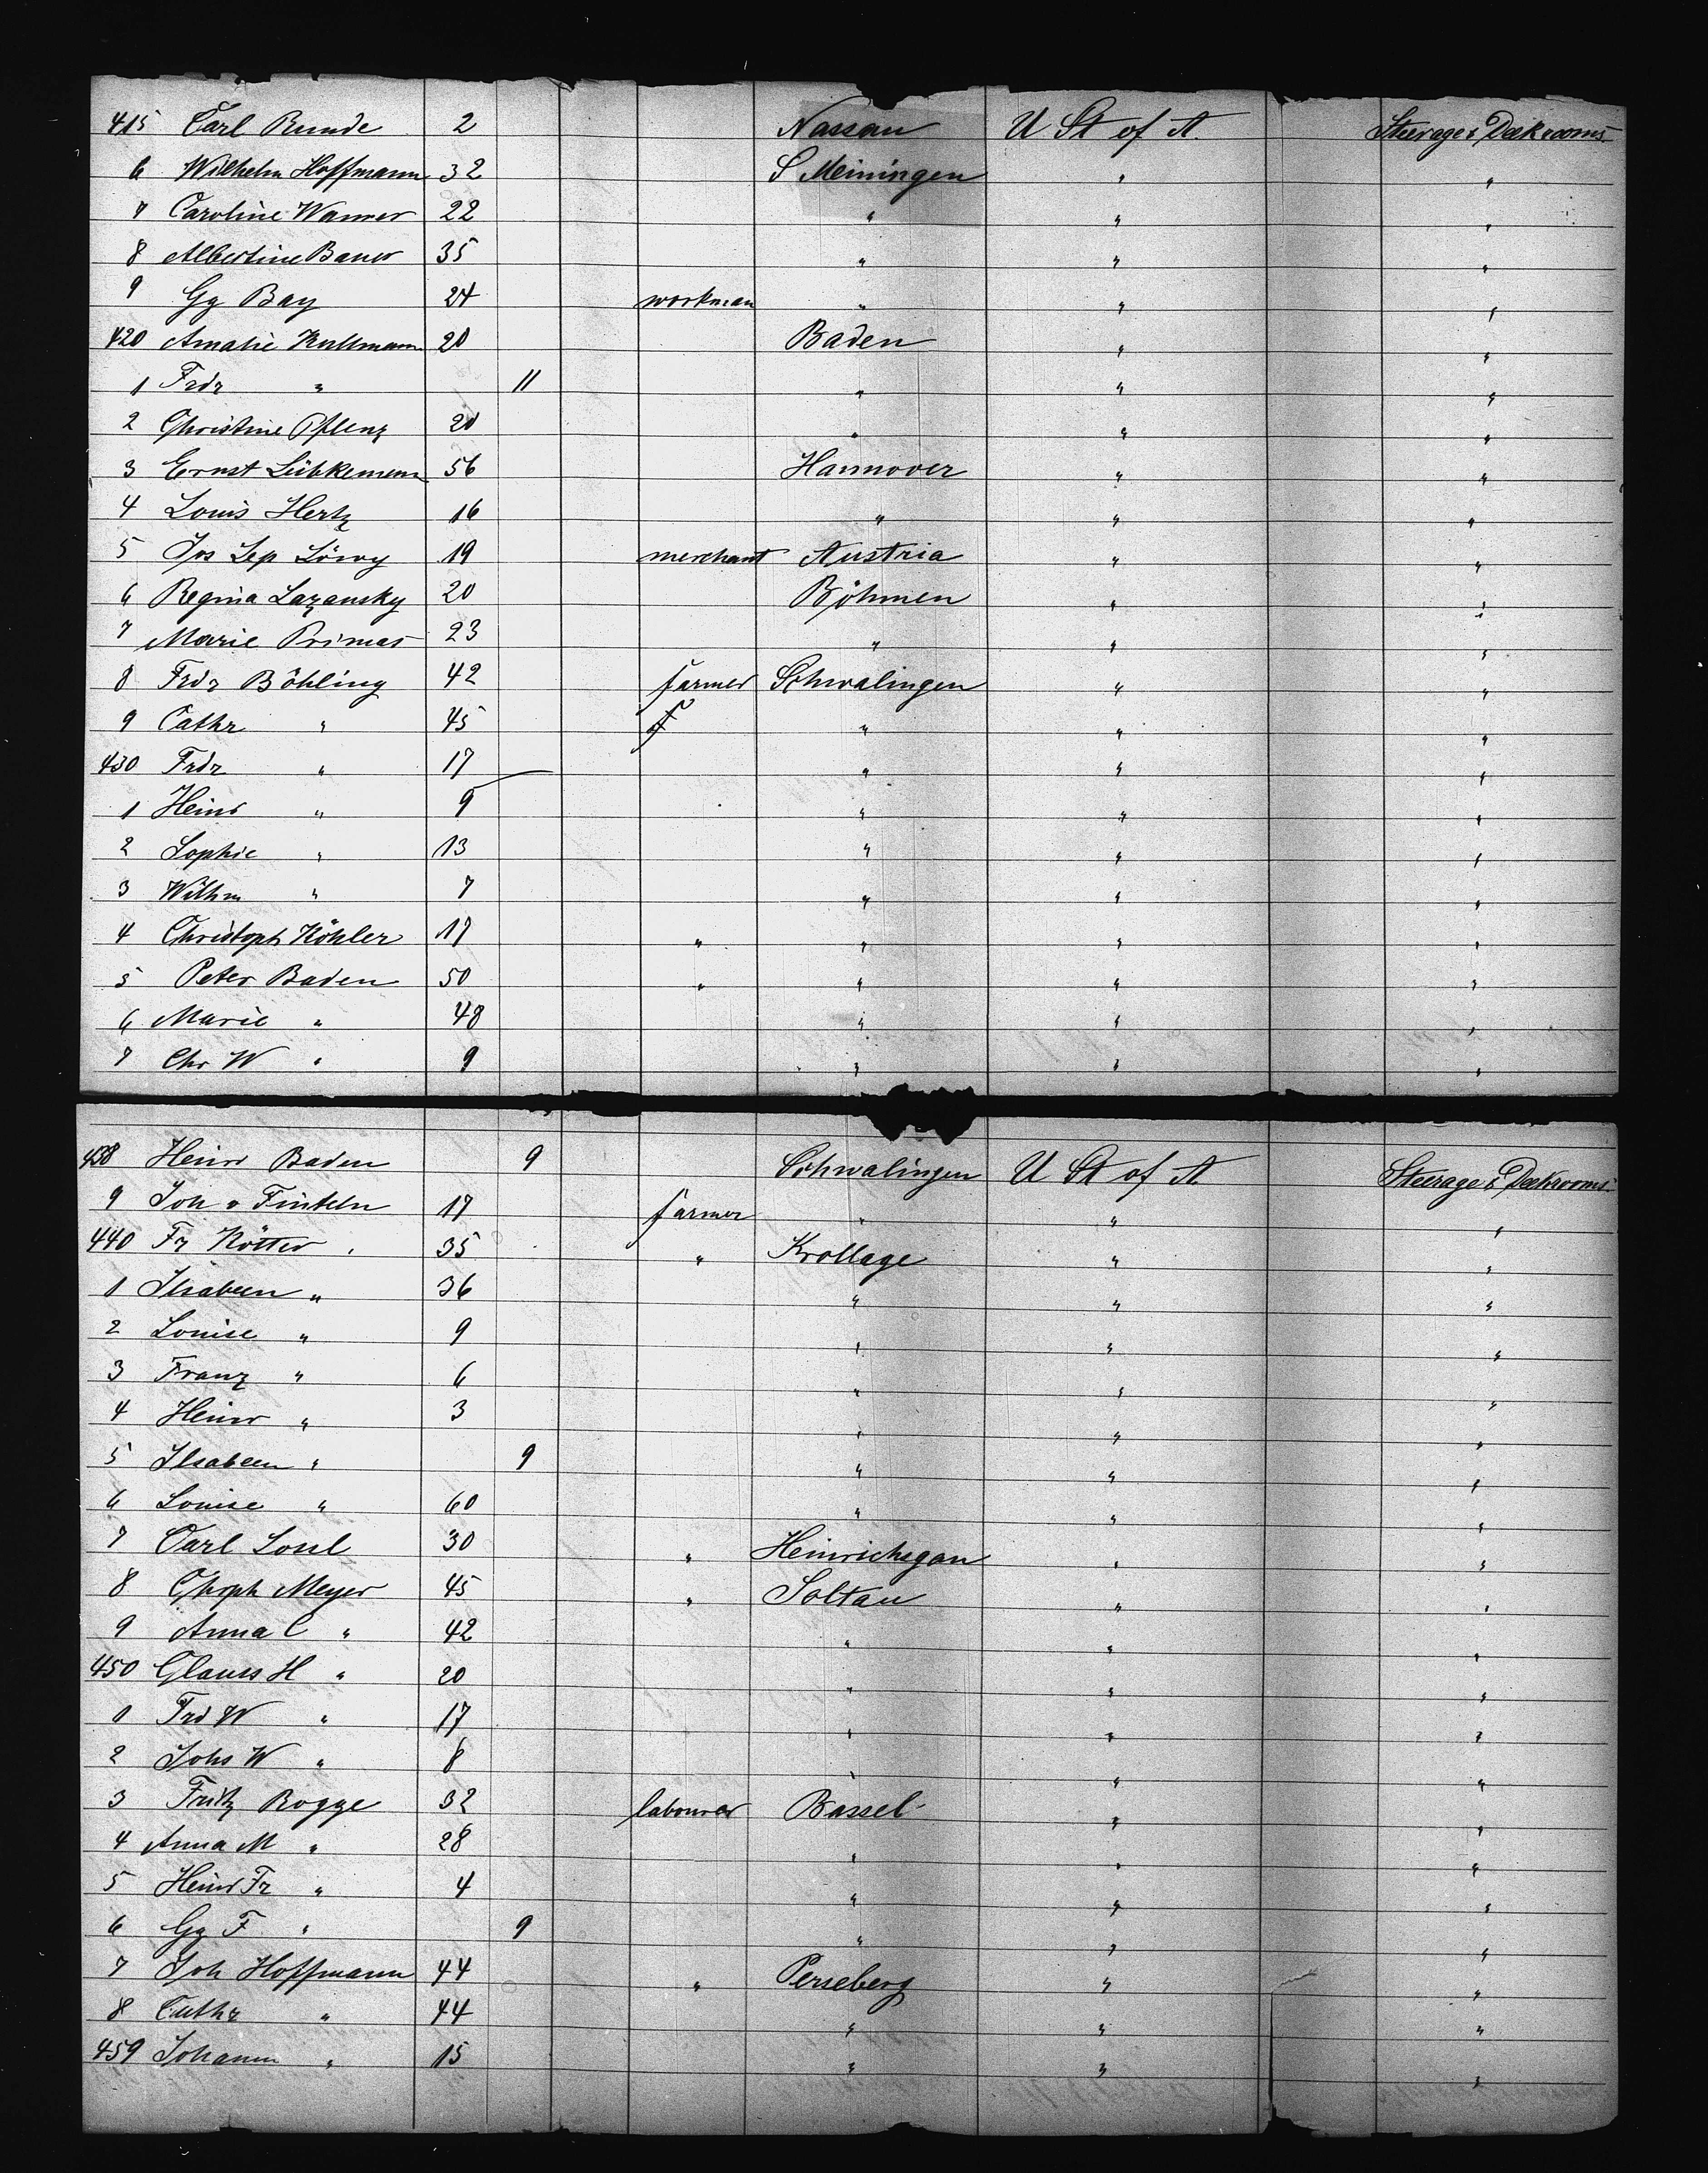 415 Carl Runde 2 Nassau U St of A. Steerage & Deckrooms
6 Wilhelm Hoffmann 32 S Meiningen " "
7 Caroline Wanner 22 " " "
8 Albertine Bauer 35 " " "
9 Gg Bay 24 workman " " "
420 Amalie Kullmann 20 Baden " "
1 Frdr " 11 " " "
2 Christine Pflenz 20 " " "
3 Ernst Lübkemann 56 Hannover " "
4 Louis Hertz 16 " " "
5 Jos Lep Löwy 19 merchant Austria " "
6 Regina Lazansky 20 Böhmen " "
7 Marie Primas 23 " " "
8 Frdr Böhling 42 farmer Schwalingen " "
9 Cathr " 45 f " " "
430 Frdr " 17 " " "
1 Heinr " 9 " " "
2 Sophie " 13 " " "
3 Wilhm " 7 " " "
4 Christoph Köhler 17 " " " "
5 Peter Baden 50 " " " "
6 Marie " 48 " " "
7 Chr W " 9 " " "
438 Heinr Baden 9 Schwalingen U St of A Steerage & Deckrooms
9 Joh v Finteln 17 farmer " " "
440 Fr Kötter 35 " Krollage " "
1 Ilsabeen " 36 " " "
2 Louise " 9 " " "
3 Franz " 6 " " "
4 Heinr " 3 " " "
5 Ilsabeen " 9 " " "
6 Louise " 60 " " "
7 Carl 30 " " "
8 Chrph Meyer 45 " Soltau " "
9 Anna C " 42 " " "
450 Clauss H " 20 " " "
1 Frd W " 17 " " "
2 Johs W " 8 " " "
3 Fritz Rogge 32 labourer Bassel " "
4 Anna M " 28 " " "
5 Heinr Fr " 4 " " "
6 Gg F " 9 " " "
7 Joh Hoffmann 44 " Perseberg " "
8 Cathr " 44 " " "
459 Johann " 15 " " "